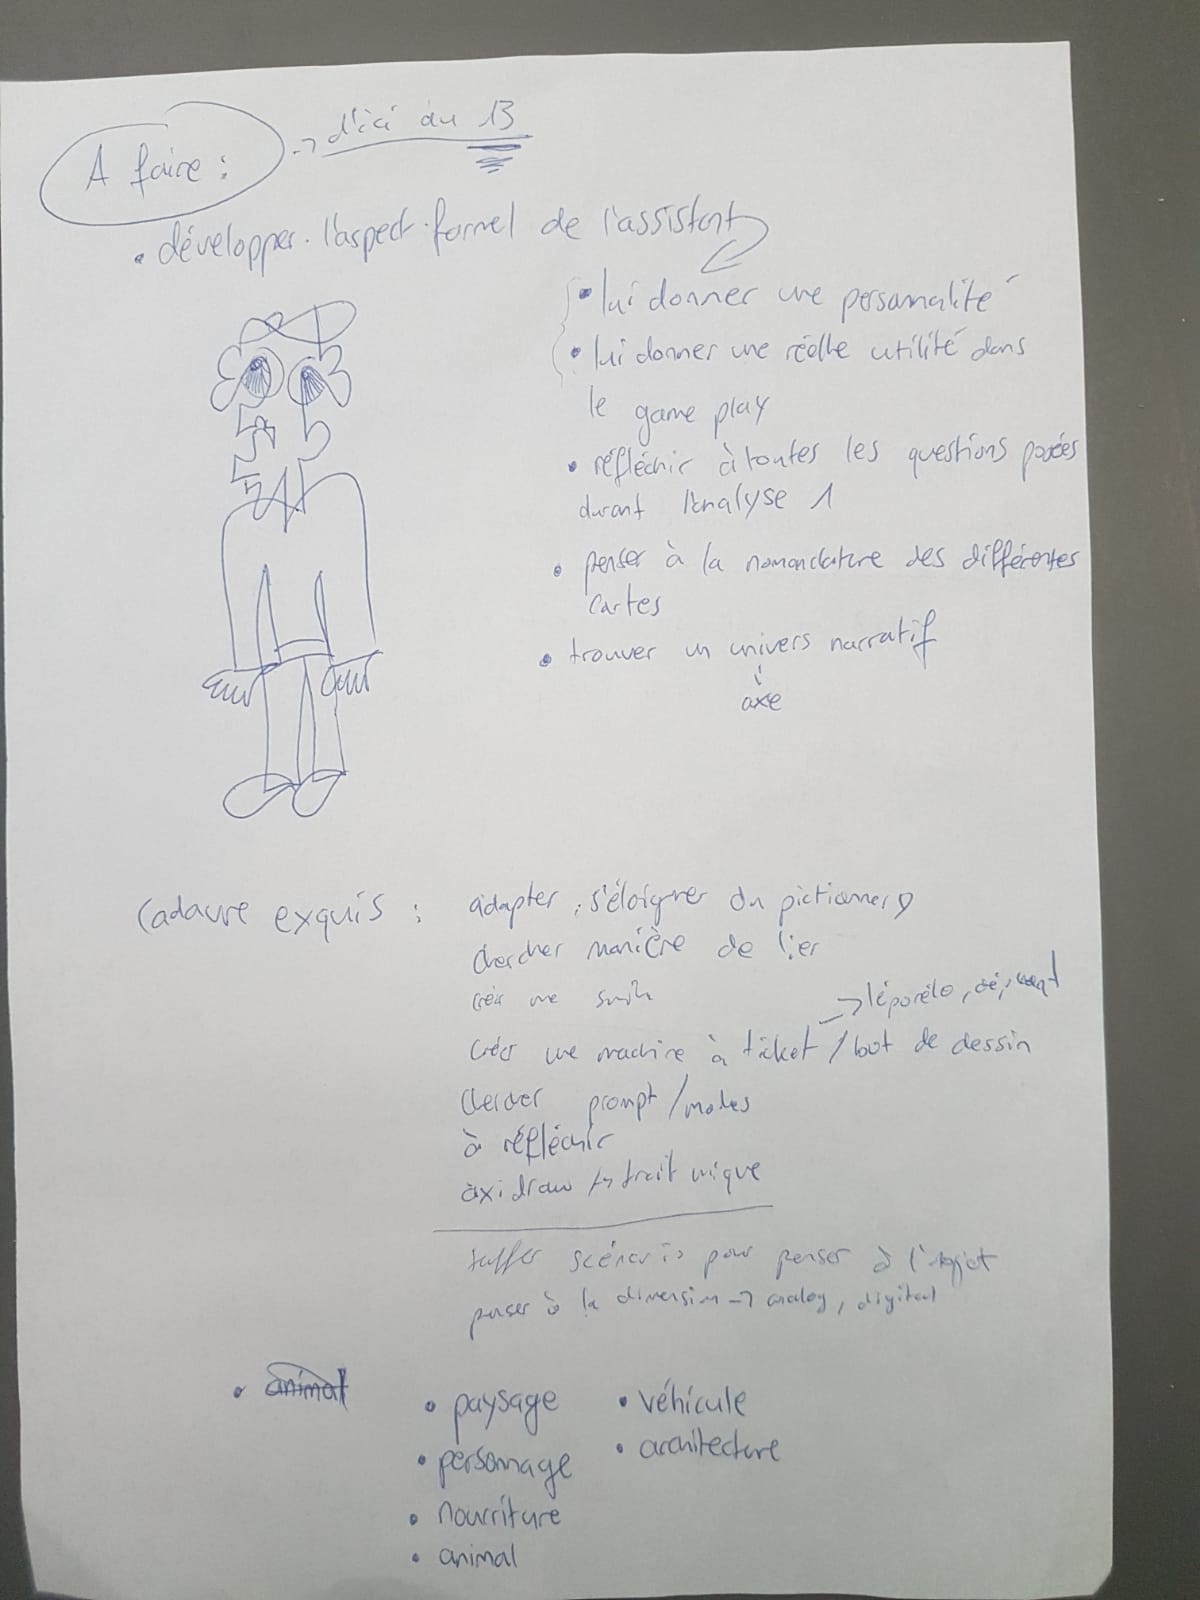 A faire :
→ d'ici au 13
• développer l'aspect formel de l'assistant
• lui donner une personnalité
• lui donner une réelle utilité dans
le game play
• réfléchir à toutes les questions posées
durant l'Analyse 1
• penser à la nomenclature des différentes
cartes
• trouver un univers narratif
axe
Cadavre exquis : adapter, s'éloigner du pictionnary
chercher manière de lier
créer une suite
→ léporélo,
créer une machine à ticket / bot de dessin
chercher prompt / modes
à réfléchir
axidraw trait unique
scénario pour penser à l'objet
penser à la dimension → analog, digital
• animal
• paysage
• véhicule
• personnage
• architecture
• nourriture
• animal